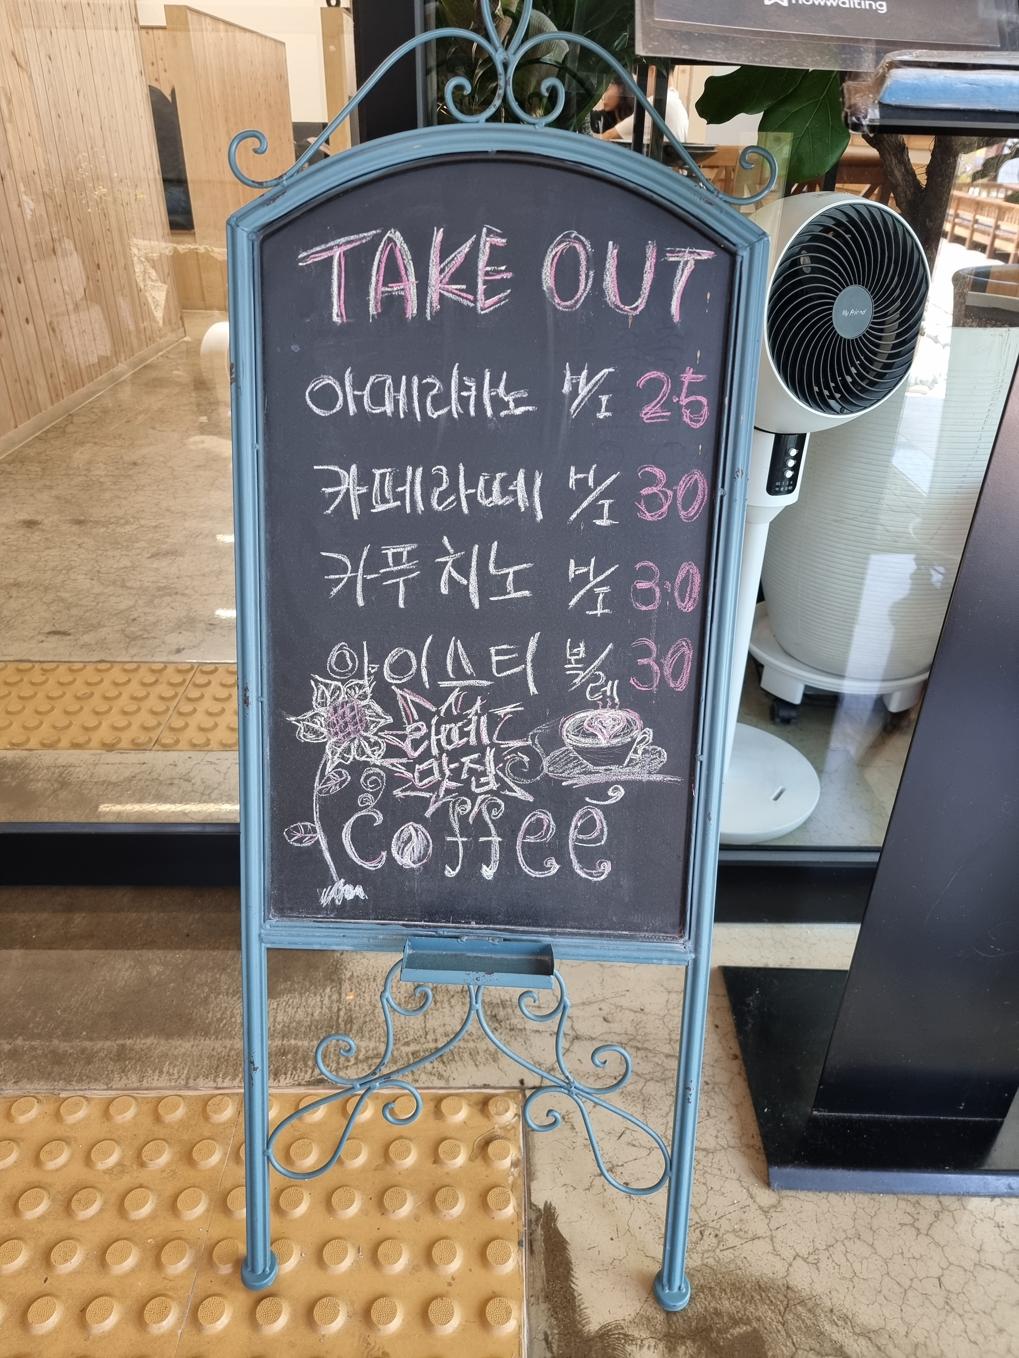 nowwaiting
TAKE OUT
아메리카노 H/I 25
카페라떼 H/I 30
카푸치노 H/I 3.0
아이스티 복/레 30
라떼는
맛집
Coffee
My Friend